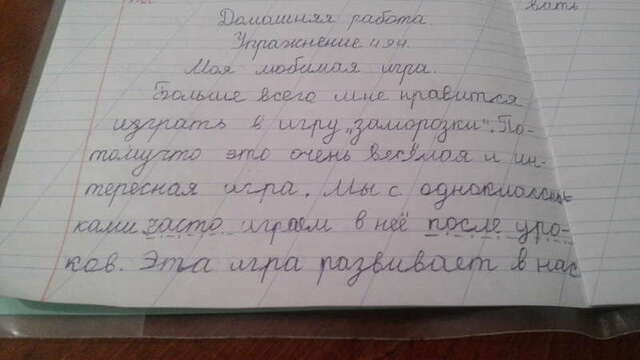 вать
Домашняя работа.
Упражнение 494.
Моя любимая игра.
Больше всего мне нравится
изграть в игру „заморозки". По-
томучто это очень весёмая и ин-
тересная игра. Мы с однокласс
ками часто играем в неё после уро-
ков. Эта игра развивает в нас